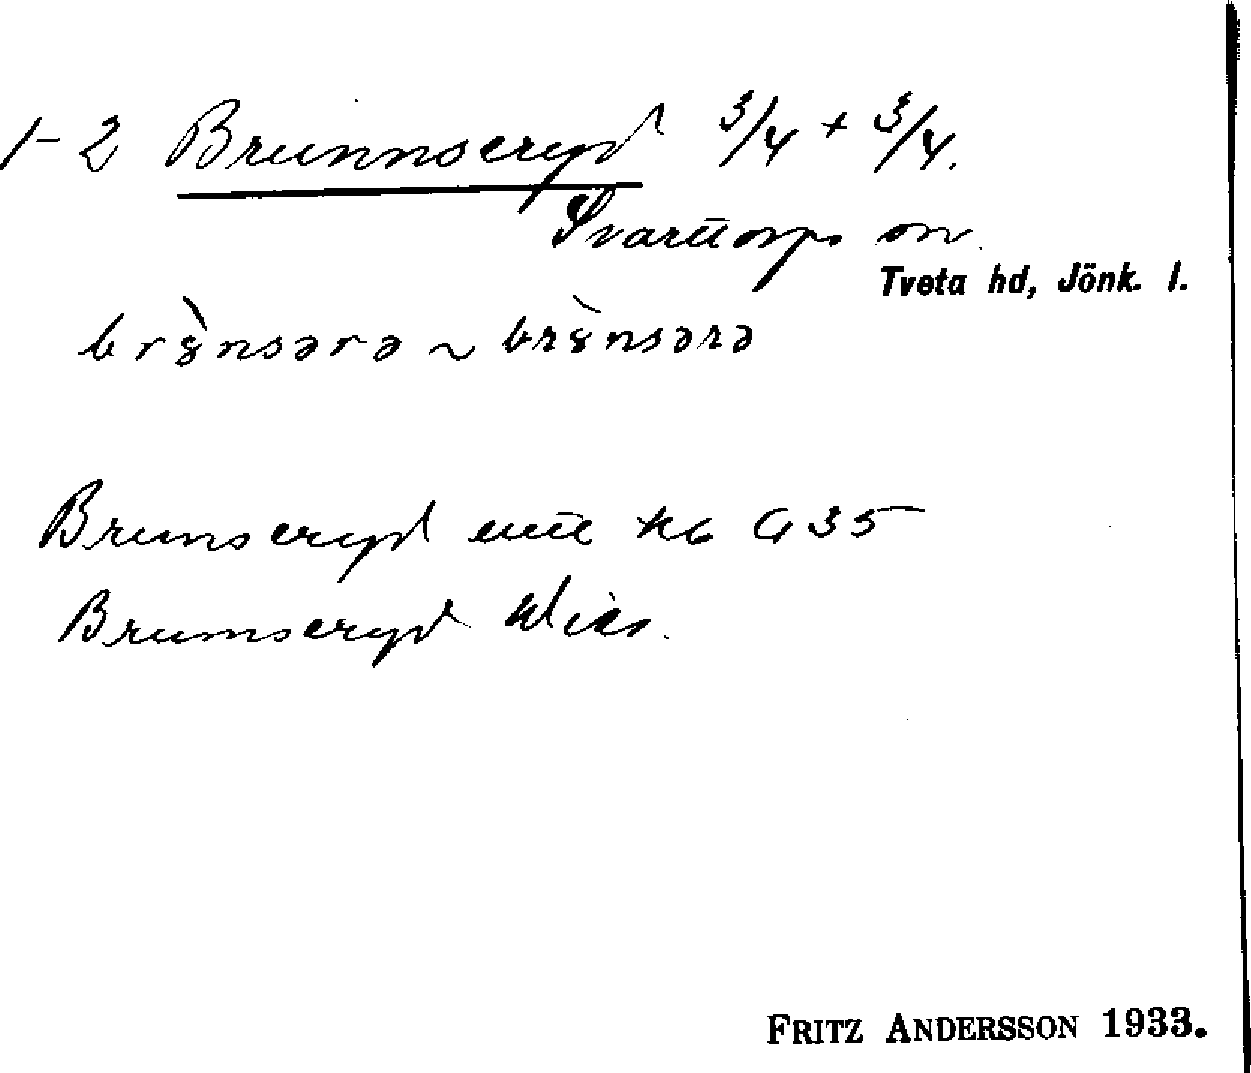 1-2 Brunnseryd 3/4 + 3/4.
Svarttorps sn.
Tveta hd, Jönk. l.
br8̀nsərə ~ br8̀nsərə
Brunseryd enl kb G 35
Brumseryd
FRITZ ANDERSSON 1933.